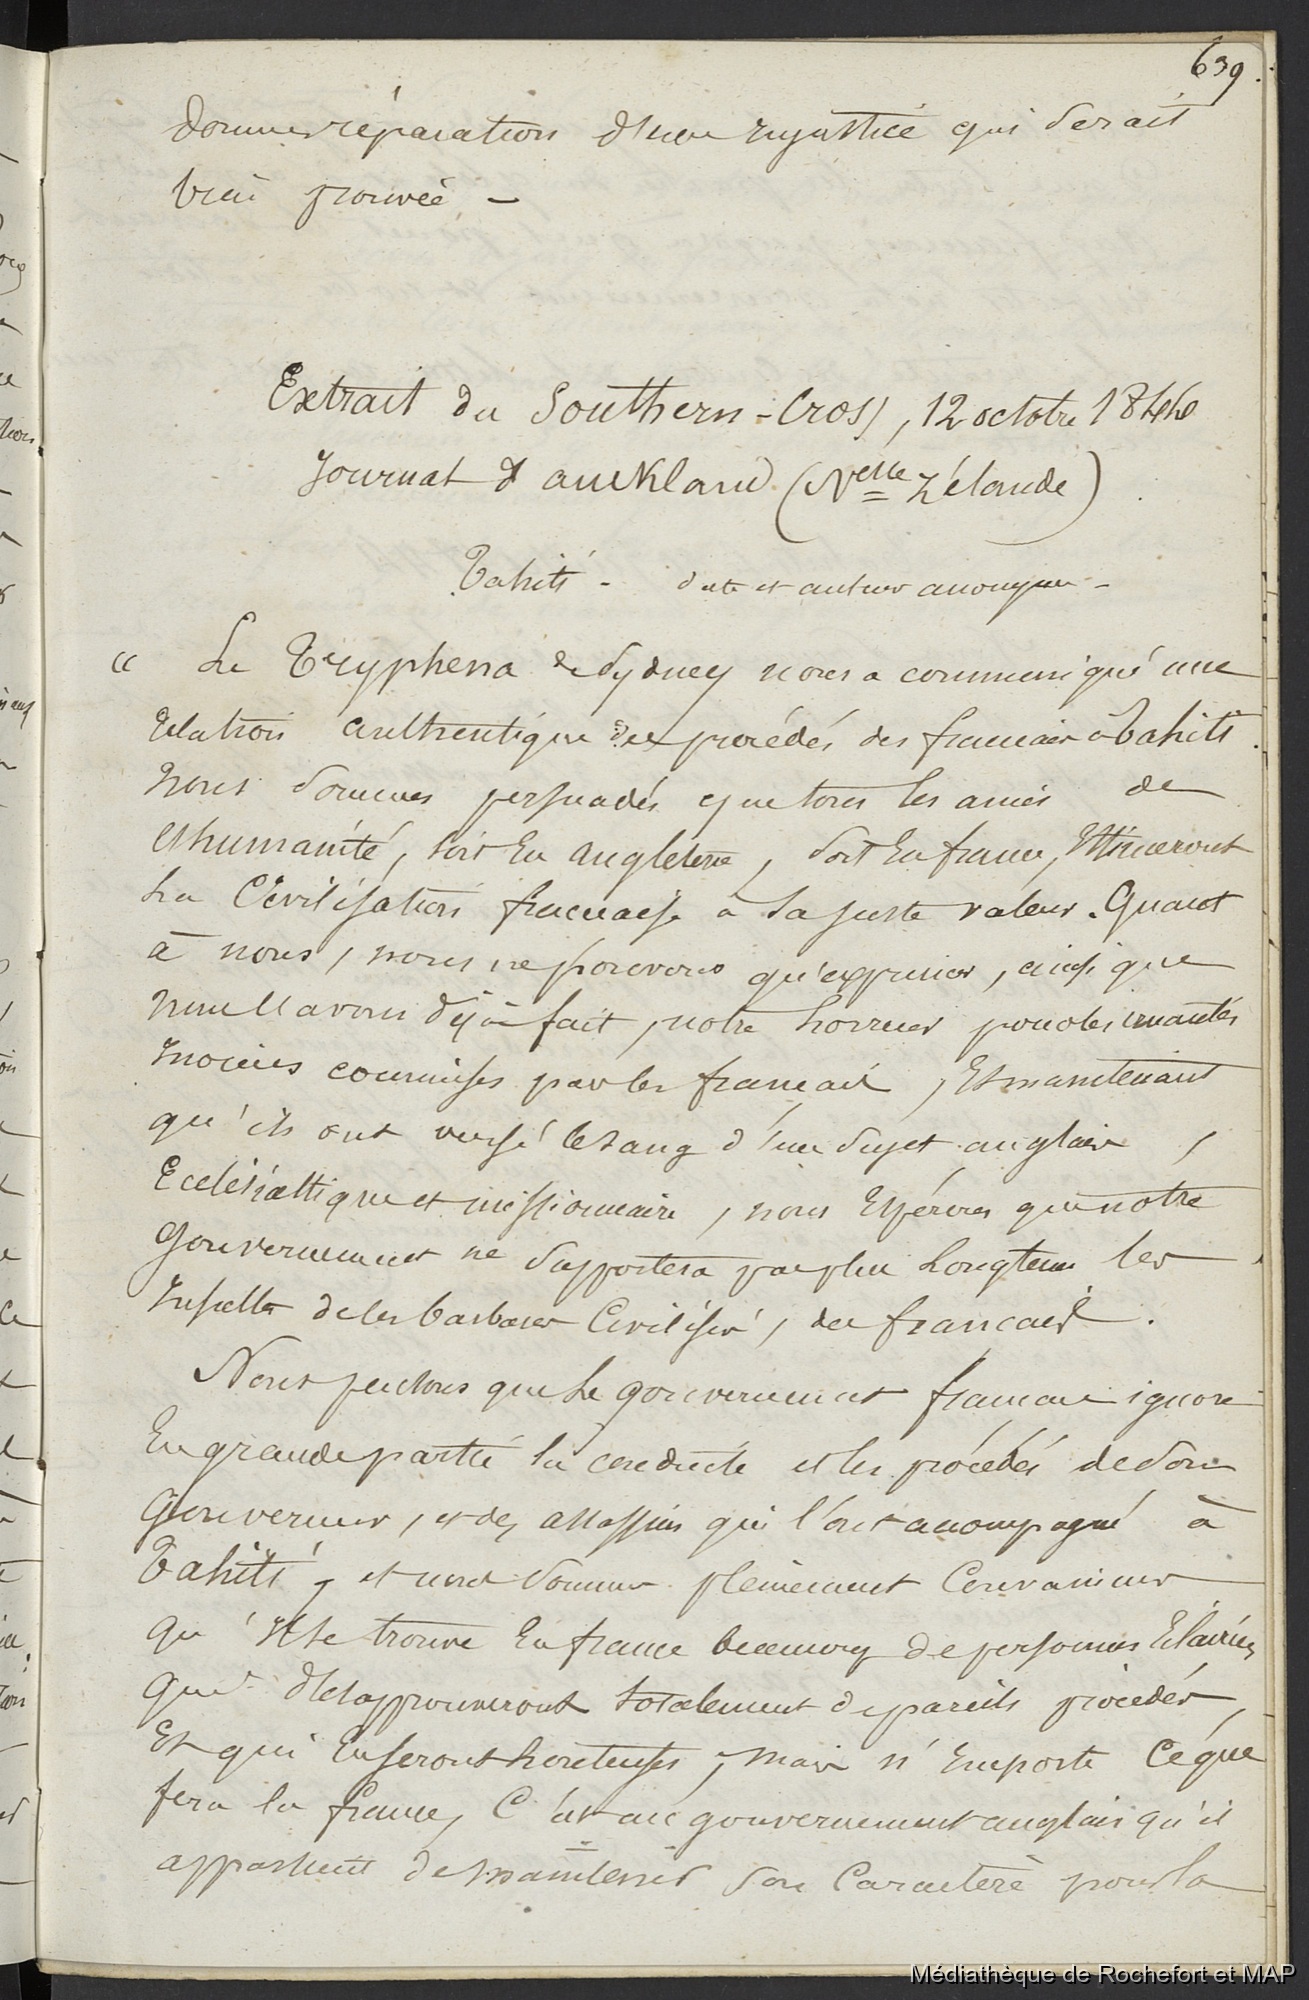 639.
donner réparation d'une injustice qui serait
bien prouvée -
Extrait du Southern-Cross, 12 octobre 1844
Journal d'auckland (Nelle Zélande)
Tahiti - date et auteur anonyme -
" Le Tryphena de Sydney nous a communiqué une
relation authentique des procédés des francais à Tahiti.
nous sommes persuadés que tous les amis de
l'humanité, soit En angleterre, soit En france, Estimeront
La Civilisation francaise à sa juste valeur. Quant
à nous, nous ne pouvons qu'exprimer, ainsi que
nous l'avons déjà fait, notre horreur pour les cruautés
Inouies commises par les francais, Et maintenant
qu'ils ont versé le sang d'un sujet anglais,
Ecclésiastique et missionnaire, nous Espérons que notre
Gouvernement ne supportera pas plus Longtems les
Insultes de ces barbares Civilisés, des francais.
Nous pensons que Le gouvernement francais ignore
En grande partie la conduite et les procédés de son
Gouverneur, et des assassins qui l'ont accompagné à
Tahiti, et nous sommes pleinement Convaincus
qu'Il se trouve En france beaucoup de personnes Eclairées
qui désapprouveront totalement de pareils procédés,
Et qui En seront honteuses, mais n'Importe Ce que
fera la france, C'est au gouvernement anglais qu'il
appartient de maintenir son Caractère pour la
Médiathèque de Rochefort et MAP